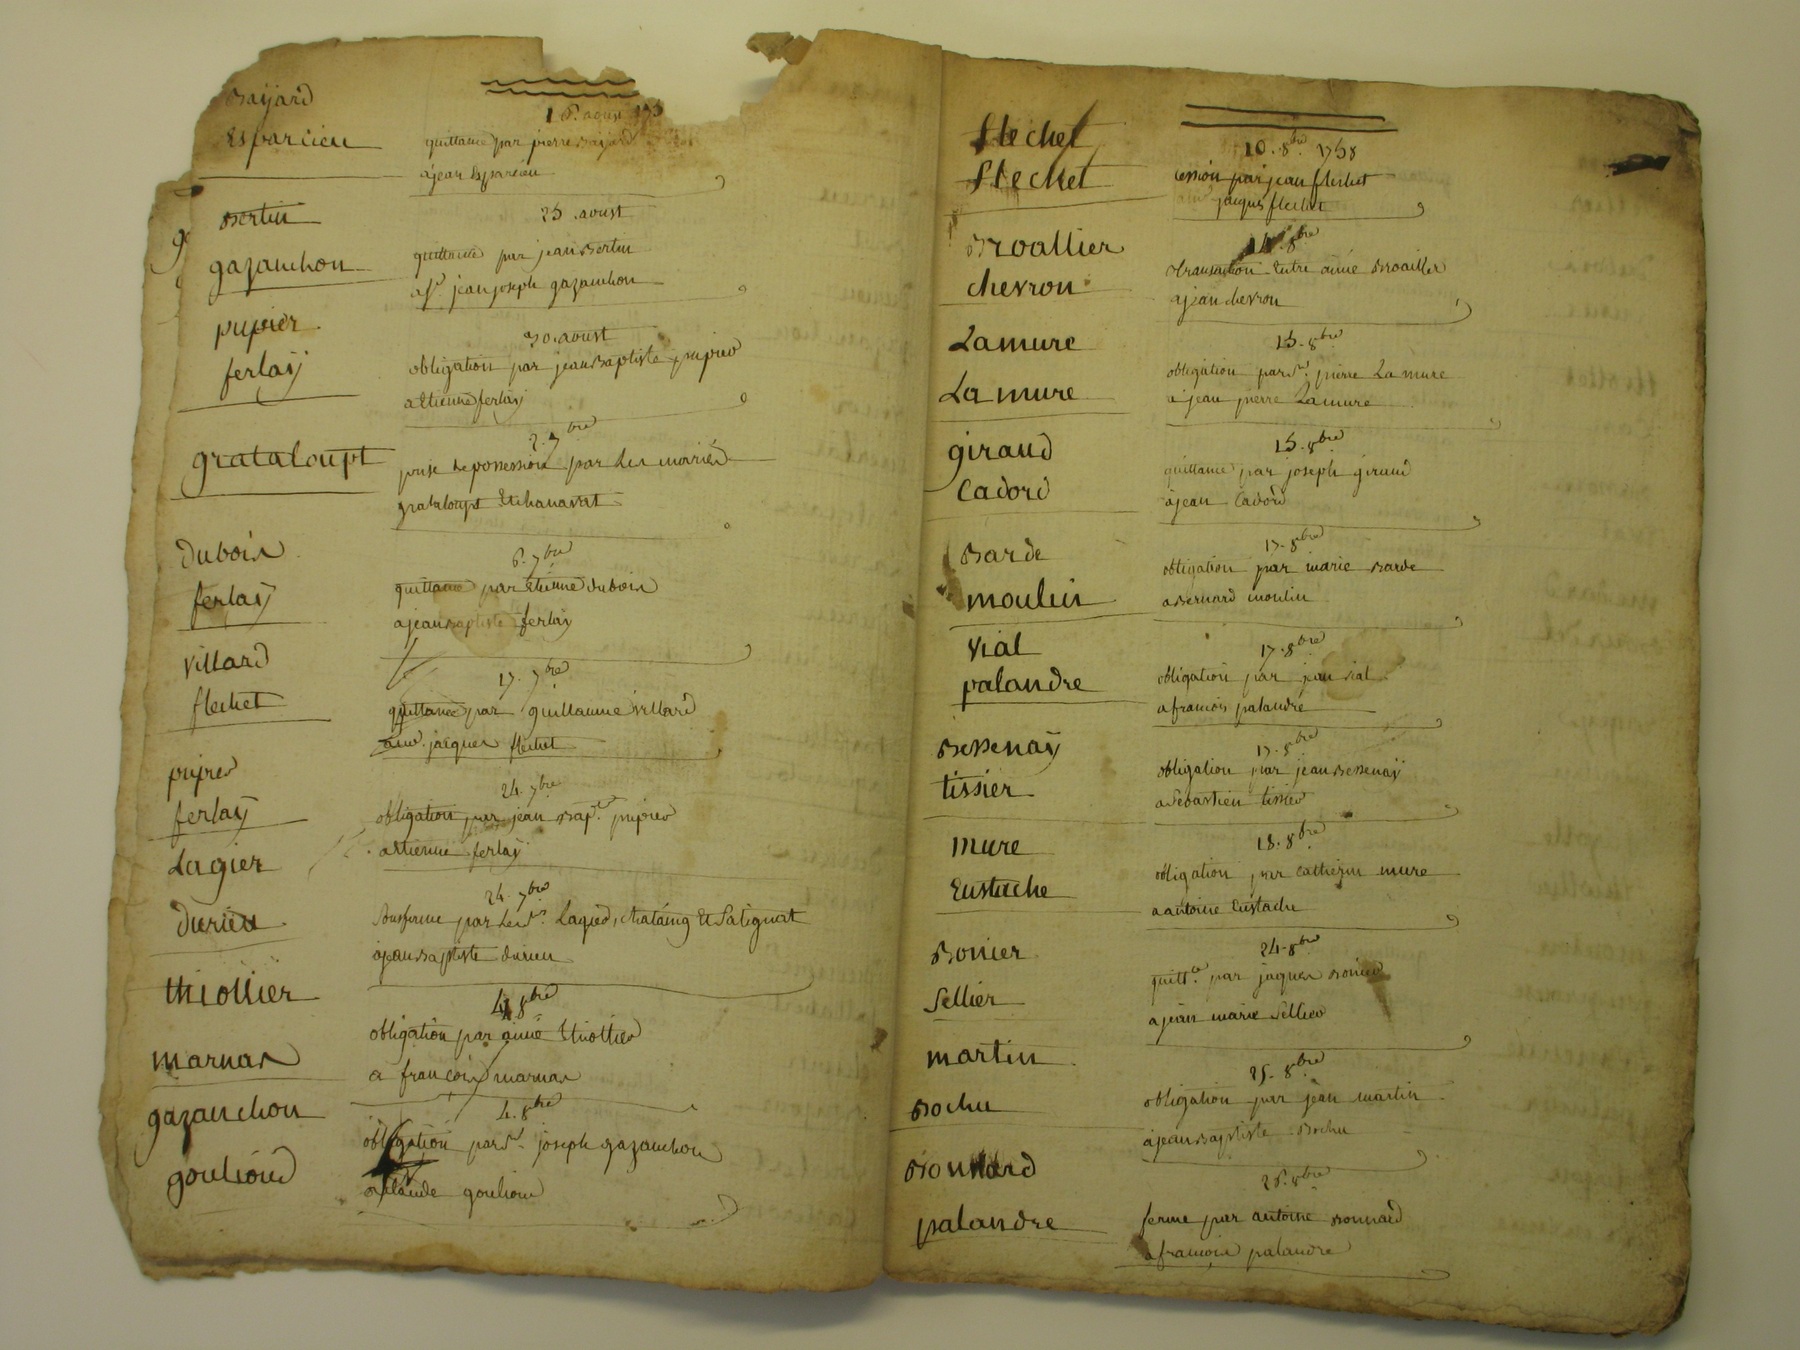 Bayard
Esparcieu
16. aoust 175
quittance par pierre Bayard
a jean Esparcieu
Bertin
gazanchon
25 . aoust
quittance par jean Bertin
a Sr. jean joseph gazanchon
pupier
ferlaÿ
30. aoust
obligation par jean Baptiste pupier
a Etienne ferlaÿ
grataloupt
2. 7bre
prise de possession par les mariés
grataloupt Et chanavat
Dubois
ferlaÿ
6. 7bre
quittance par Etienne dubois
a jean Baptiste ferlaÿ
Villard
flechet
17. 7bre
quittance par guillaume villard
a jacques flechet
pupier
ferlaÿ
24. 7bre
obligation par jean Bapt. pupier
a Etienne ferlaÿ
Lagier
Durieu
24. 7bre
Sousferme par Les Srs. Lagier, chataing Et Salignat
a jean Baptiste durieu
thiollier
marnas
4. 8bre
obligation par aimé thiollier
a françois marnas
gazanchon
gouliond
4. 8bre
obligation par Sr. joseph gazanchon
a claude goulion
flechet
flechet
10. 8bre. 1758
cession par jean flechet
jacques flechet
Broallier
chevron
14. 8bre
transaction Entre aimé Broallier
a jean chevron
Lamure
La mure
15. 8bre
obligation par Sr. pierre La mure
a jean pierre Lamure
giraud
Cadord
15. 8bre
quittance par joseph giraud
a jean Cadord
Barde
moulin
17. 8bre
obligation par marie Barde
a Bernard moulin
vial
palandre
17. 8bre
obligation par jean vial
a francois palandre
Bessenaÿ
tissier
17. 8bre
obligation par jean Bessenaÿ
a Sebastien tissier
mure
Eustache
18. 8bre
obligation par catherin mure
a antoine Eustache
Bonier
Sellier
24. 8bre
quittce par jaques Bonier
a jean marie Sellier
martin
Bochu
25. 8bre
obligation par jean martin
a jean Baptiste Bochu
Bonnard
palandre
28. 8bre
ferme par antoine Bonnard
a francois palandre